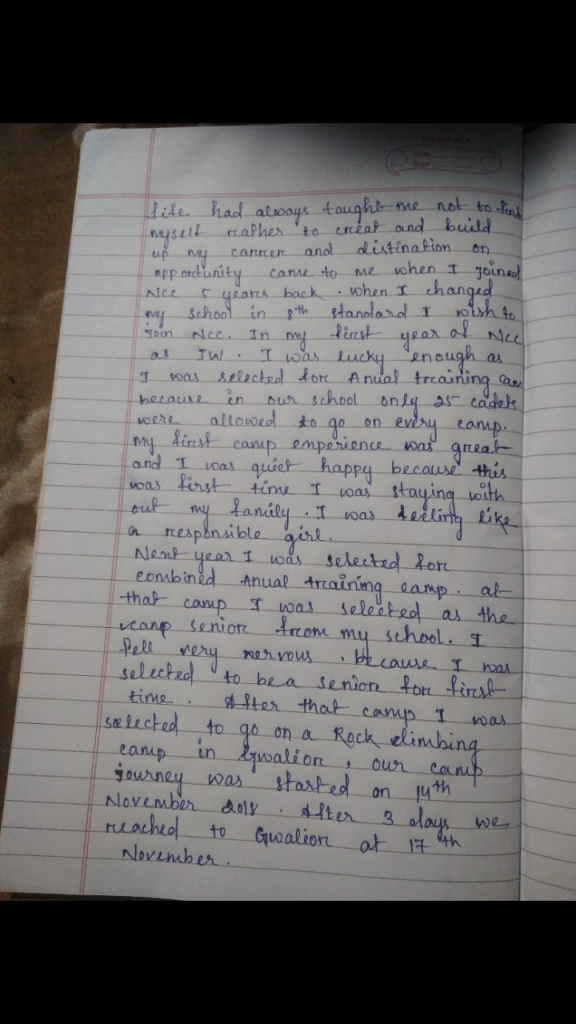 life had always taught me not to find
myself rather to creat and build
up my carrer and distination on
opportunity came to me when I joined
NCC 5 years back. when I changed
my school in 8th standard I wish to
join NCC. In my first year of NCC
as JW. I was lucky enough as
I was selected for Anual training cam
because in our school only 25 cadets
were allowed to go on every camp.
my first camp emperience was great
and I was quiet happy because this
was first time I was staying with
out my family. I was feeling like
a responsible girl.
Next year I was selected for
combined Anual training camp. at
that camp I was selected as the
camp senior from my school. I
fell very nervous. because I was
selected to be a senior for first
time. After that camp I was
selected to go on a Rock climbing
camp in Gwalior, our camp
journey was started on 14th
November 2018. After 3 days we
reached to Gwalior at 17th
November.